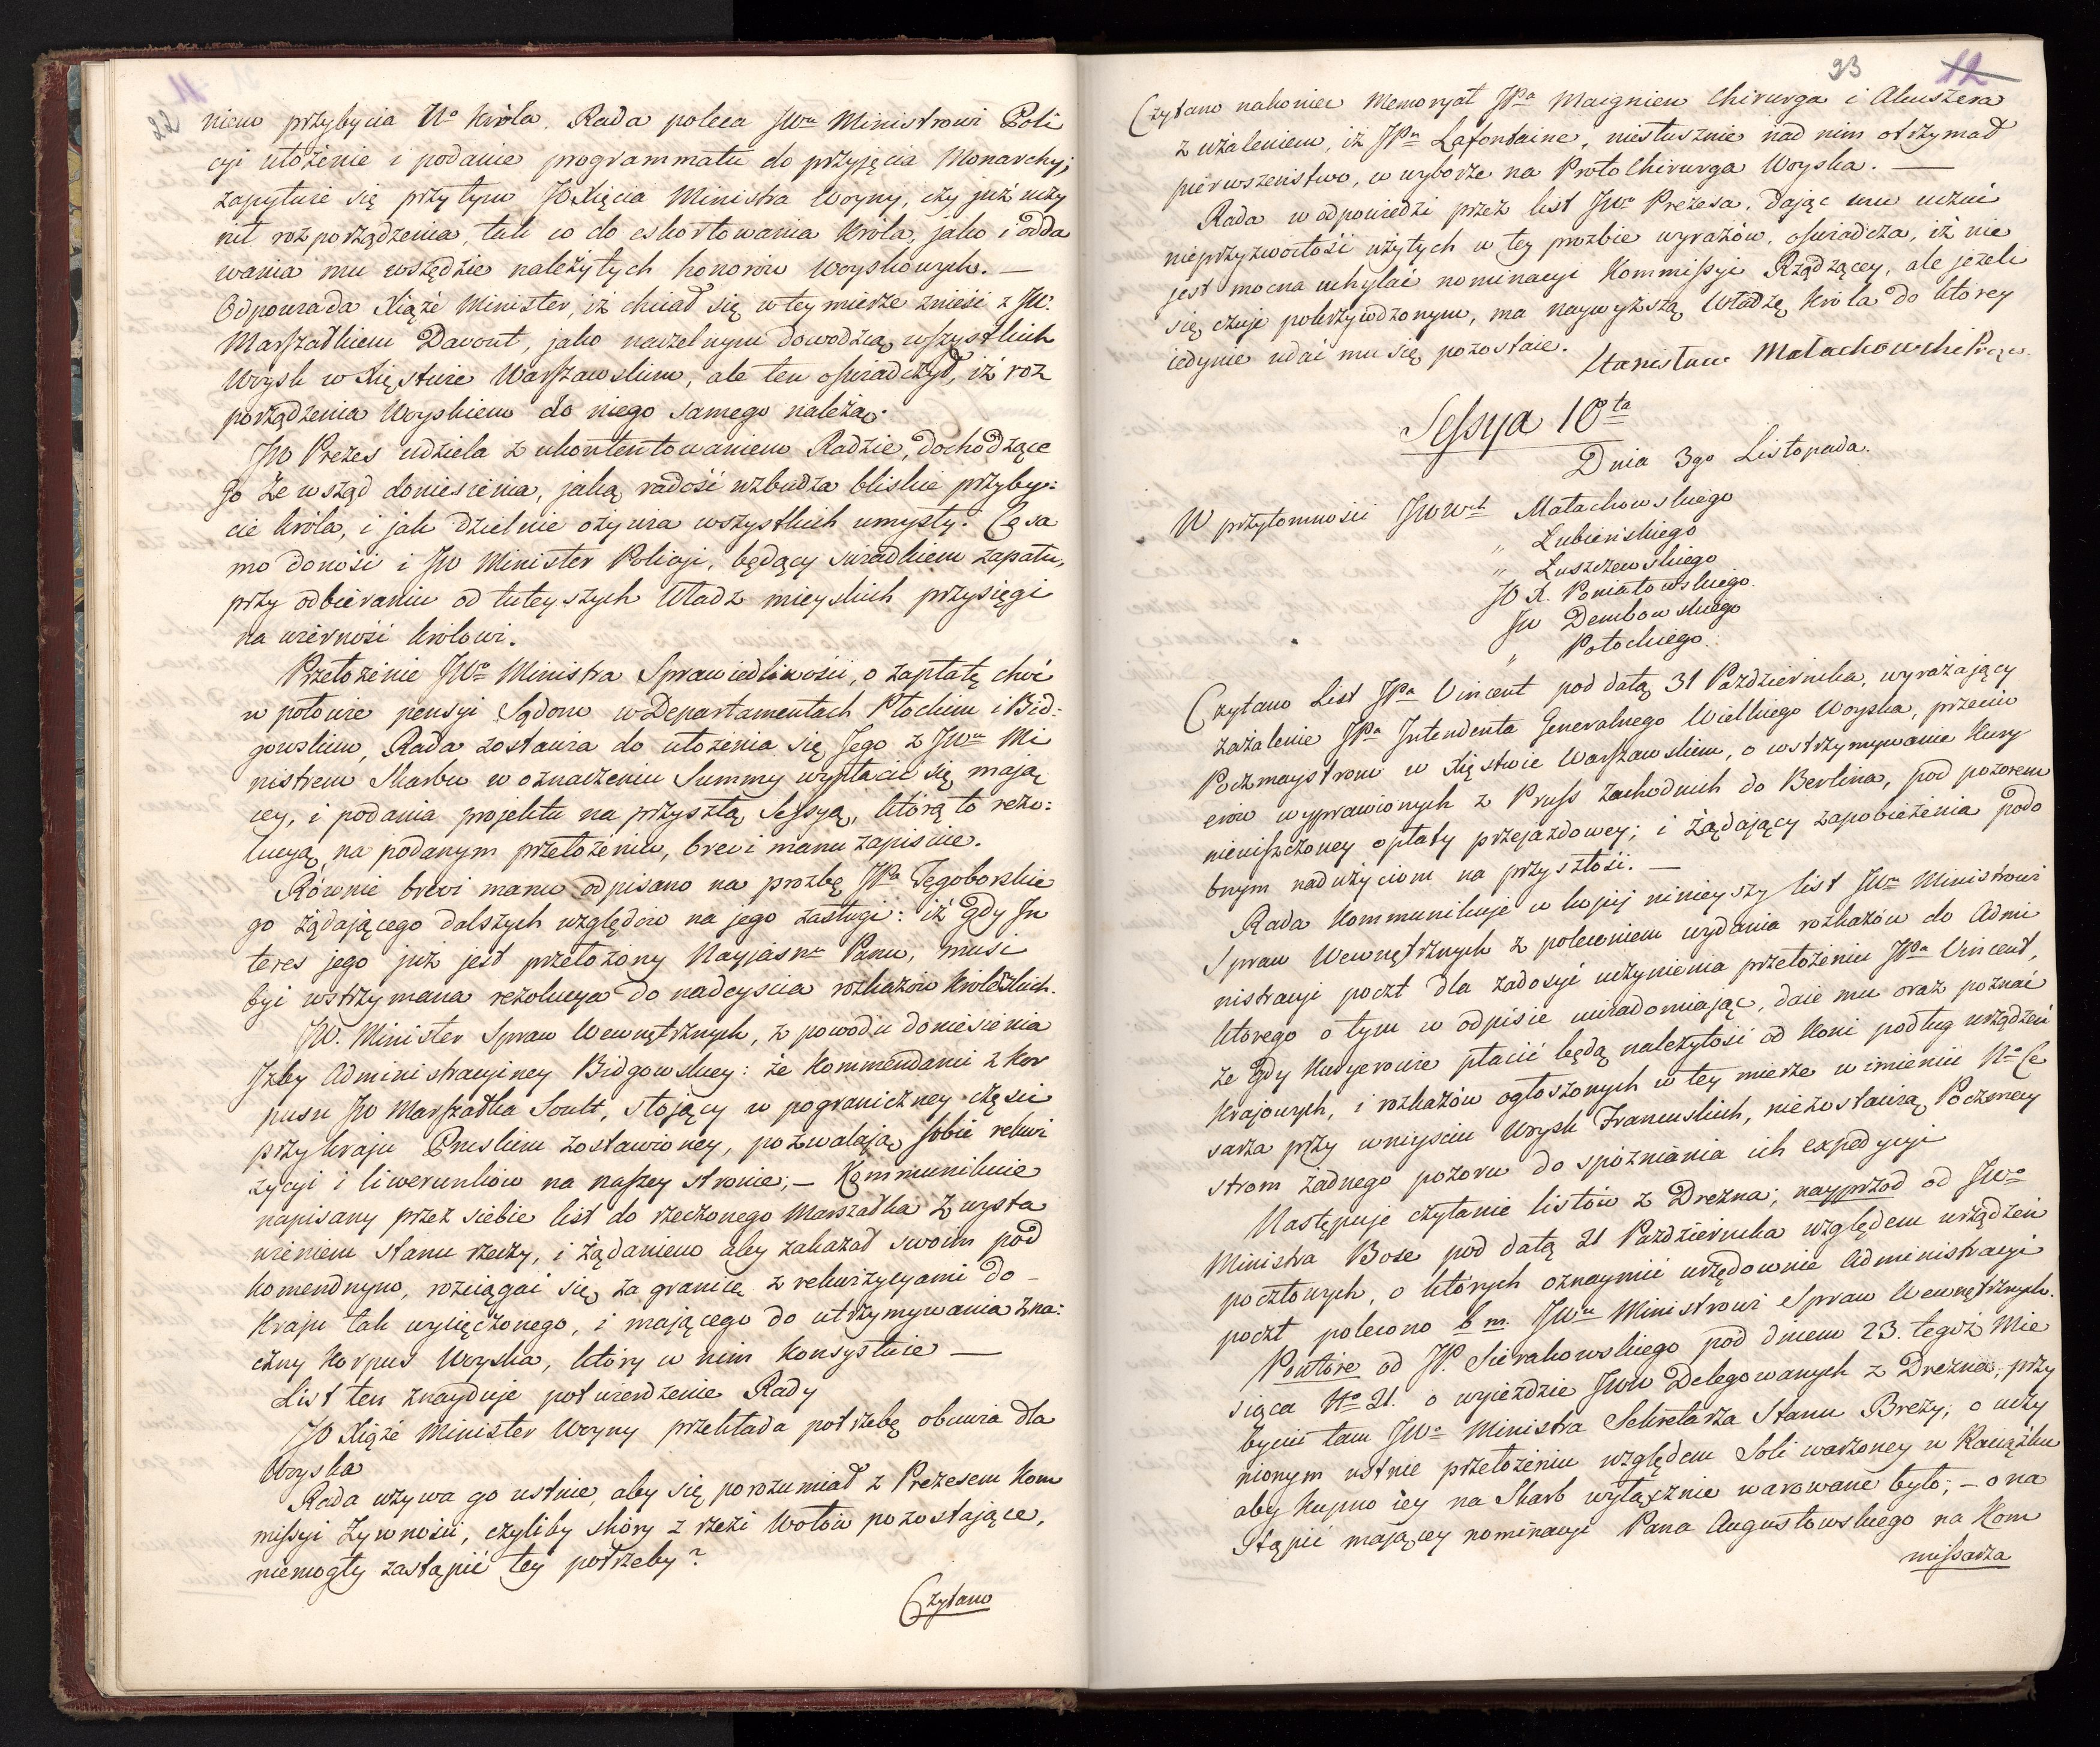 22
niem przybycia No Króla. Rada poleca JWu Ministrowi Poli
cyi ułożenie i podanie programmatu do przyjęcia Monarchy;
zapytuie się przytym JO Xięcia Ministra Woyny, czy już uczy
nił rozporządzenia, tak co do eskortowania Króla, jako i odda
wania mu wszędzie należytych honorów woyskowych. —
Odpowiada Xiąże Minister, iż chciał się w tey mierze znieść z JW.
Marszałkiem Davout, jako naczelnym dowodzcą wszystkich
Woysk w Xięstwie Warszawskim, ale ten oświadczył, iż roz
porządzenia Woyskiem do niego samego należą.
JW Prezes udziela z ukontentowaniem Radzie, dochodzące
go ze wsząd doniesienia, jaką radość wzbudza bliskie przyby:
cie Króla, i jak dzielnie ożywia wszystkich umysły. Tęsa
mo donosi i JW Minister Policyi, będący świadkiem zapału,
przy odbieraniu od tuteyszych Władz mieyskich przysięgi
na wierność Królowi.
Przełożenie JWo Ministra Sprawiedliwości, o zapłatę choć
w połowie pensyi Sądom w Departamentach Płockim i Bid:
gowskim, Rada zostawia do ułożenia się Jego z JWm Mi
nistrem Skarbu w oznaczeniu Summy wypłacić się mają
cey, i podania projektu na przyszłą Sessyą, którą to rezo:
lucyą na podanym przełożeniu, brevi manu zapisuie.
Równie brevi manu odpisano na prozbę JPa Tęgoborskie
go żądającego dalszych względów na jego zasługi: iż gdy In
teres jego już jest przełożony Nayjaśnu Panu, musi
być wstrzymana rezolucya do nadeyścia rozkazów Królewskich.
JW. Minister Spraw Wewnętrznych, z powodu doniesienia
Izby Administracyiney Bidgowskiey: że Kommendanci z Kor
pusu JW Marszałka Soult, stojący w pograniczney części
przy kraju Pruskim zostawioney, pozwalają sobie rekwi
zycyi i liwerunków na naszey stronie; — Kommunikuie
napisany przez siebie list do rzeczonego Marszałka z wysta
wieniem stanu rzeczy, i żądaniem aby zakazał swoim pod
komendnym, rozciągać się za granicę z rekwizycyami do —
Kraju tak wycięczonego, i mającego do utrzymywania zna:
czny Korpus Woyska, który w nim konsystuie —
List ten znayduje potwierdzenie Rady
JO Xiąże Minister Woyny przekłada potrzebę obuwia dla
Woyska
Rada wzywa go ustnie, aby się porozumiał z Prezesem Kom
missyi Żywności, czyliby skóry z rzezi Wołów pozostające,
niemogły zastąpić tey potrzeby?
Czytano
23
12
Czytano nakoniec Memoryał JPa Maignien Chirurga i Akuszera
z użaleniem, iż JPn Lafontaine, niesłusznie nad nim otrzymał
pierwszeństwo, w wyborze na Proto Chirurga Woyska. —
Rada w odpowiedzi przez list JWo Prezesa, dając mu uczuć
nieprzyzwoitość użytych w tey prozbie wyrazów, oświadcza, iż nie
jest mocna uchylać nominacyi Kommissyi Rządzącey, ale jeżeli
się czuje pokrzywdzonym, ma naywyższą Władzę Króla do którey
iedynie udać mu się pozostaie.
Stanisław Małachowski
Sessya 10ta
Dnia 3go Listopada.
W przytomności JWWch Małachowskiego
" Łubieńskiego
" Łuszczewskiego
JO X. Poniatowskiego.
JW Dembowskiego
" Potockiego.
Czytano List JPa Vincent pod datą 31 Października, wyrażający
zażalenie JPa Intendenta Generalnego Wielkiego Woyska, przeciw
Poczmaystrom w Xięstwie Warszawskim, o wstrzymywanie Kury
erów wyprawionych z Pruss Zachodnich do Berlina, pod pozorem
nieuiszczoney opłaty przejazdowey; i żądający zapobieżenia podo
bnym nadużyciom na przyszłość. —
Rada Kommunikuje w kopij ninieyszy list JWu Ministrowi
Spraw Wewnętrznych z poleceniem wydania rozkazów do Admi
nistracyi poczt dla zadosyć uczynienia przełożeniu JPa Vincent,
którego o tym w odpisie uwiadomiając, daie mu oraz poznać
że gdy Kuryerowie płacić będą należytość od Koni podług urządzeń
Krajowych, i rozkazów ogłoszonych w tey mierze w imieniu No Ce
sarza przy wnieyściu Woysk Francuskich, niezostawią Poczmey
strom żadnego pozoru do spóźniania ich expedycyi
Następuje czytanie listów z Drezna; nayprzód od JWo
Ministra Bose pod datą 21 Października względem urządzeń
pocztowych, o których oznaymić urzędownie Administracyi
poczt polecono b m. JWu Ministrowi Spraw Wewnętrznych.
Powtóre od JP. Sierakowskiego pod dniem 23. tegoż Mie
siąca No 21. o wyjeździe JWW Delegowanych z Drezna; przy
byciu tam JWo Ministra Sekretarza Stanu Brezy; o uczy
nionym ustnie przełożeniu względem Soli warzoney w Raciążku
aby kupno iey na Skarb wyłącznie warowane było; — o na
stąpić mającey nominacyi Pana Augustowskiego na Kom
missarza